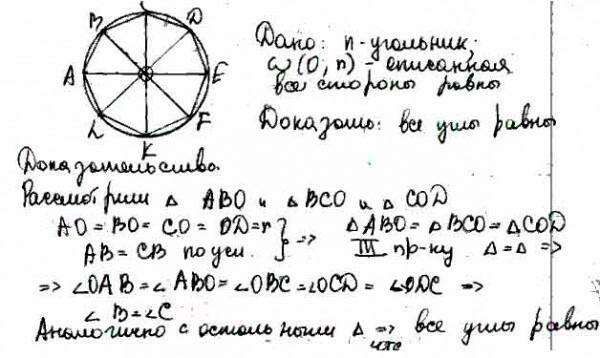 B
C
D
A
E
L
F
K
Дано: n-угольник,
ω (O, r) - описанная
все стороны равны
Доказать: все углы равны
Доказательство.
Рассмотрим △ ABO и △ BCO и △ COD
AO = BO = CO = OD = r } => △ABO = △BCO = △COD
AB = CB по усл. III пр-ку. △=△ =>
=> ∠OAB = ∠ABO = ∠OBC = ∠OCD = ∠ODC =>
∠B = ∠C
Аналогично с остальными △ => что все углы равны